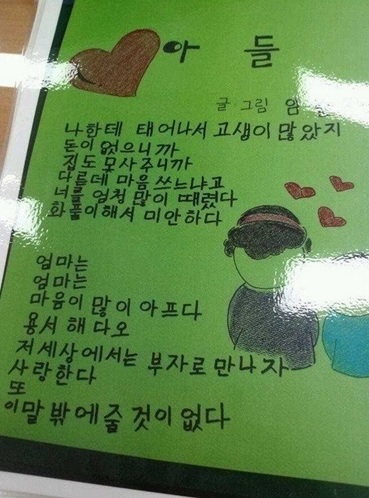 아들
글 그림
나한테 태어나서 고생이 많았지
돈이 없으니까
집도 못사주니까
다른데 마음 쓰느냐고
너를 엄청 많이 때렸다
화풀이해서 미안하다
엄마는
엄마는
마음이 많이 아프다
용서 해 다오
저 세상에서는 부자로 만나자
사랑한다
또
이말 밖에 줄 것이 없다